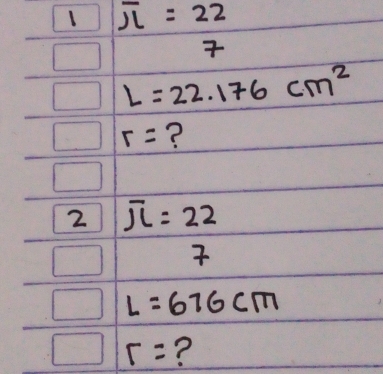 1 π = 22
7
L = 22.176 cm²
r = ?
2 π = 22
7
L = 676 cm
r = ?